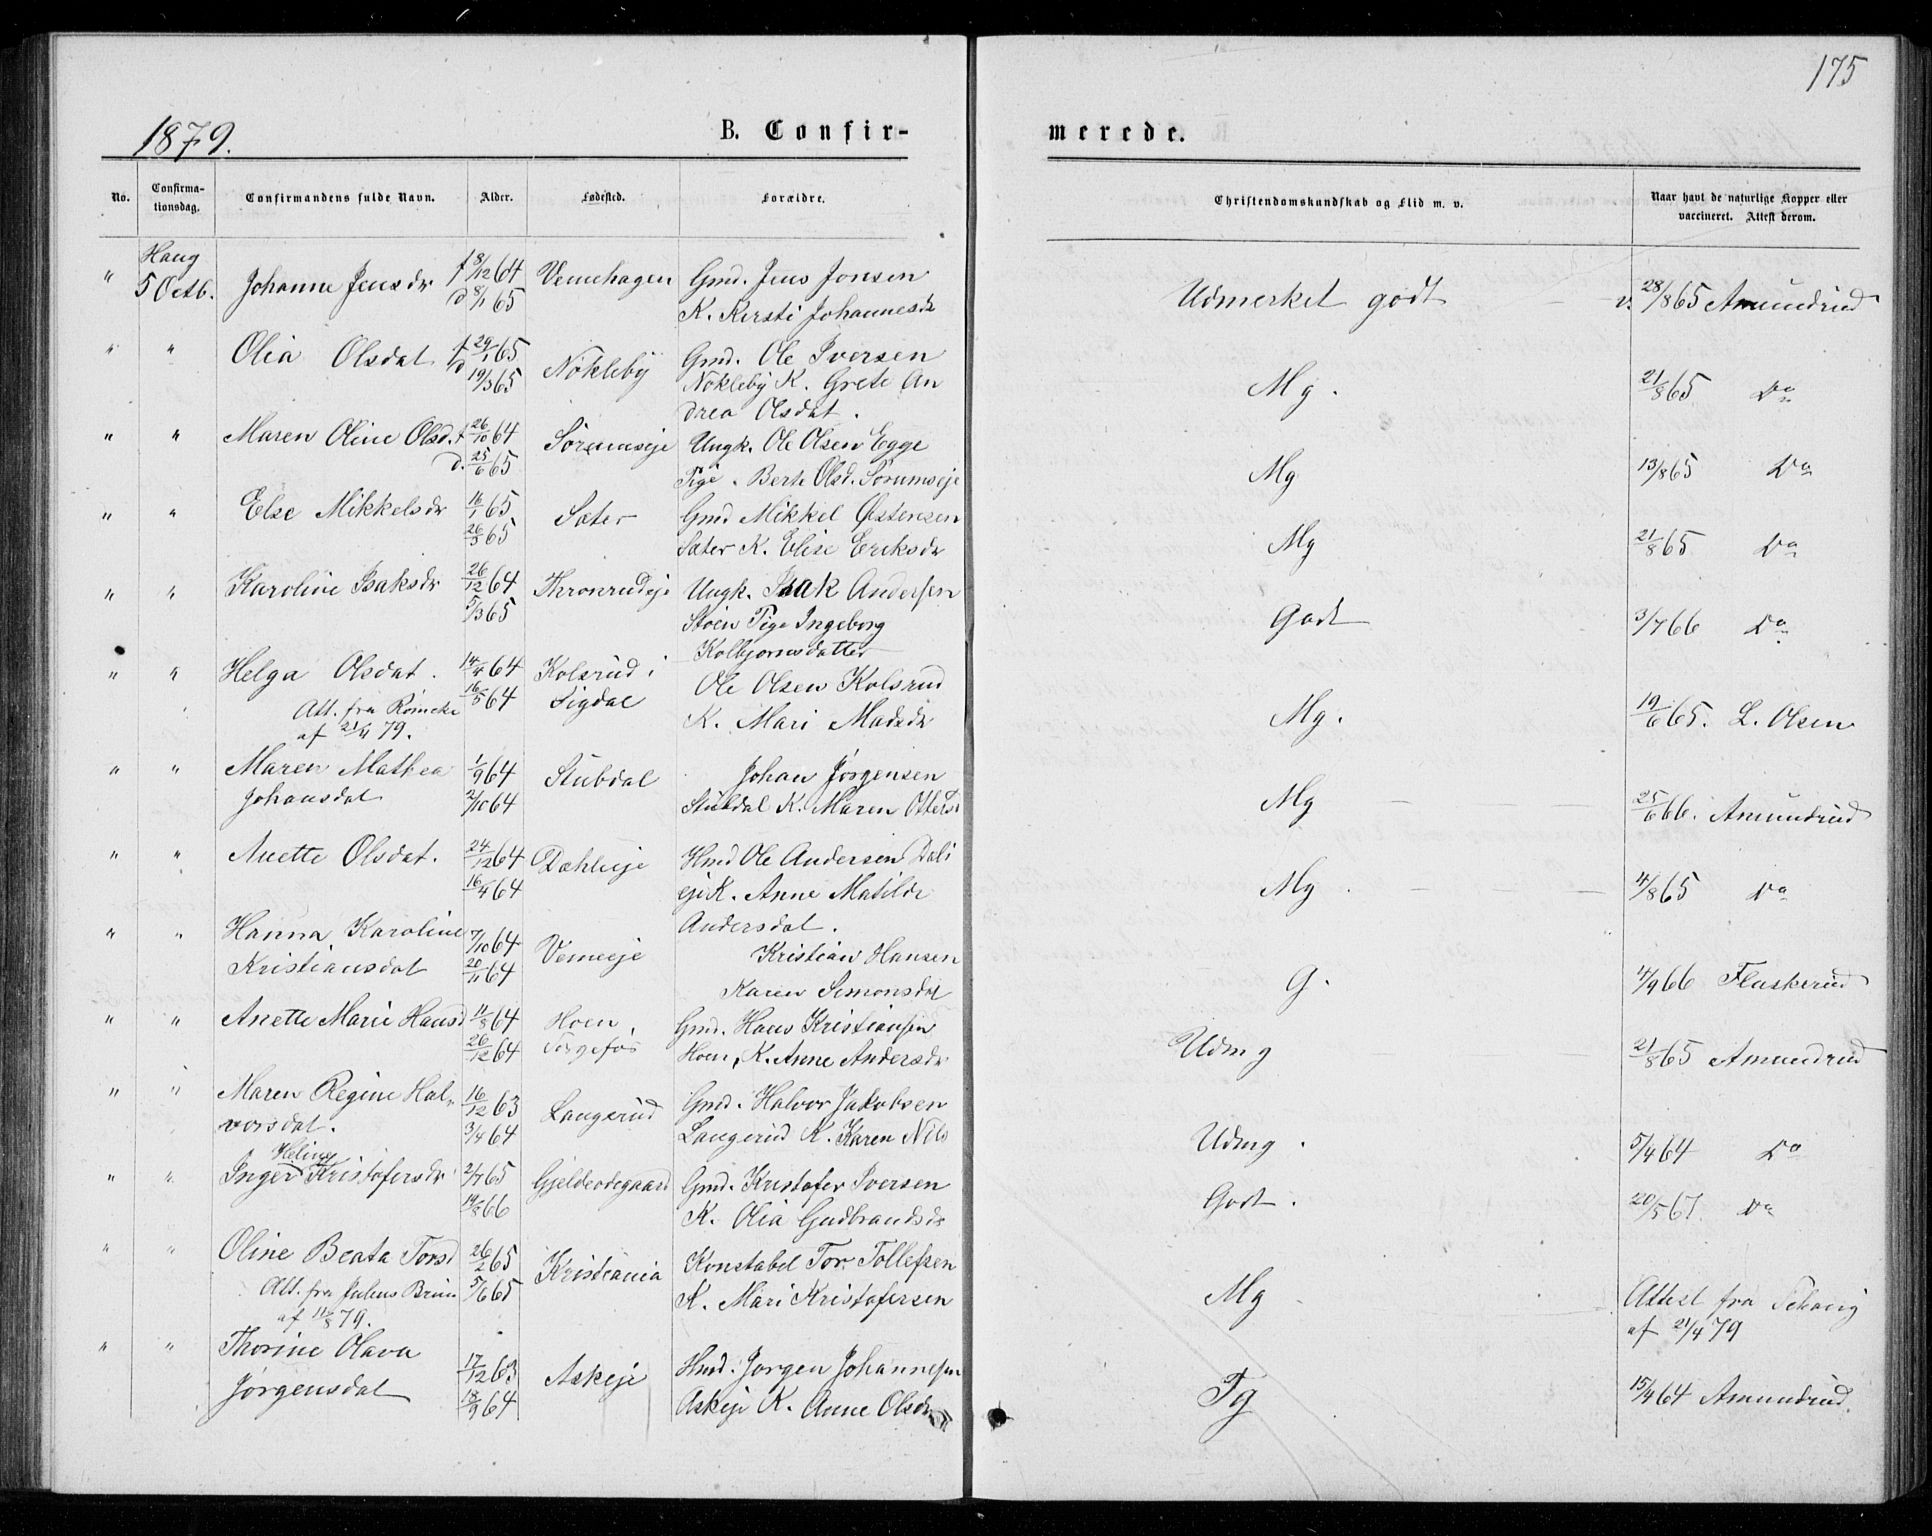 175
1879.
B. Confir-
merede.
No.
Confirma-
tionsdag.
Confirmandens fulde Navn.
Alder.
Fødested.
Forældre.
Christendomskundskab og Flid m. v.
Naar havt de naturlige Kopper eller
vaccineret. Attest derom.
Haug
" 5 Octb. Johanne Jensdr f 8/12 64 Vemehagen Gmd. Jens Jonsen
d 8/1 65 K. Kersti Johannesdr
Udmerket godt v. 28/8 65 Amundrud
" " Olia Olsdat f 29/1 65 Nökleby Gmd. Ole Iversen
d 19/3 65 Nökleby K. Grete An
drea Olsdat.
Mg. 21/8 65 Do
" " Maren Oline Olsd. f 26/10 64 Sörumseje Ungk. Ole Olsen Egge
d. 25/6 65 Pige. Berte Olsd. Sörumseje
Mg 13/8 65 Do
" " Else Mikkelsdr 16/1 65 Sæter Gmd Mikkel Östensen
26/3 65 Sæter K. Elise Eriksdr
Mg 21/8 65 Do
" " Karoline Isaksdr 26/12 64 Thronrudeje Ungk. Isak Andersen
5/3 65 Stöen Pige Ingeborg
Kolbjörnsdatter
Godt 3/7 66 Do
" " Helga Olsdat. 14/4 64 Kolsrud i Ole Olsen Kolsrud
Att. fra 16/5 64 Sigdal K. Mari Madsdr
af 21/4 79.
Mg. 19/6 65. L. Olsen
" " Maren Mathea 1/9 64 Stubdal Johan Jörgensen
Johansdat 2/10 64 Stubdal K. Maren Ottersd
Mg 25/6 66. Amundrud
" " Anette Olsdat. 24/12 64 Dæhlieje Hmd Ole Andersen Dæli
16/4 64 eje K. Anne Matilde
Andersdat.
Mg. 4/8 65 Do
" " Hanna Karoline 7/10 64 Vemeeje Kristian Hansen
Kristiansdat 20/11 64 Karen Simonsdat
G. 4/9 66 Flaskerud
" " Anette Marie Hansd 11/8 64 Hoen, Gmd. Hans Kristiansen
26/12 64 Torgefos Hoen, K. Anne Andersdr
Udmg 21/8 65 Amundrud
" " Maren Regine Hal- 16/12 63 Langerud Gmd. Halvor Jakobsen
vorsdat. 3/4 64 Langerud K. Karen Nils
Udmg. 5/4 64 Do
Heline
" " Inger Kristofersdr 2/7 65 Gjeldeödegaard Gmd. Kristofer Iversen
19/8 66 K. Olia Gudbrandsdr
Godt. 20/5 67. Do
" " Oline Beata Torsd 26/2 65 Kristiania Konstabel Tor Tollefsen
Att. fra Julius Bruun 5/6 65 K. Mari Kristofersen
af 11/8 79.
Mg Attest fra
af 21/4 79
" " Thorine Olava 17/12 63 Askeje Hmd. Jörgen Johannesen
Jörgensdat 18/9 64 Askeje K. Anne Olsdr
Tg 15/4 64 Amundrud.